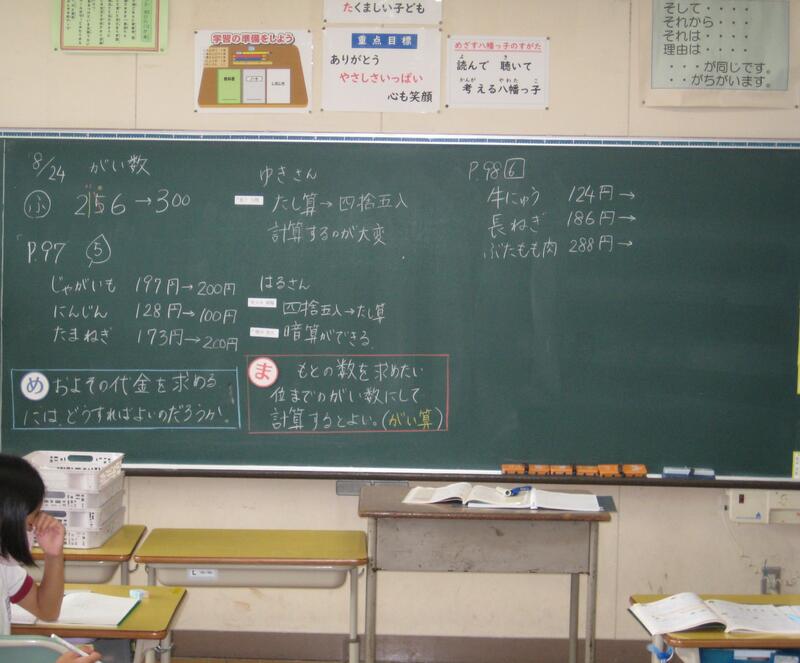 たくましい子ども
学習の準備をしよう
教科書
ノート
重点目標
ありがとう
やさしさいっぱい
心も笑顔
めざす八幡っ子のすがた
読んで 聴いて
考える八幡っ子
そして・・・・
それから・・・・
それは・・・・・
理由は・・・・
・・・が同じです。
・・がちがいます。
8/24 がい数
ふ 256→300
P.97 5
じゃがいも 197円→200円
にんじん 128円→100円
たまねぎ 173円→200円
め およその代金を求める
には、どうすればよいのだろうか。
ゆきさん
たし算→四捨五入
計算するのが大変
はるさん
四捨五入→たし算
暗算ができる
ま もとの数を求めたい
位までのがい数にして
計算するとよい。(がい算)
P.98 6
牛にゅう 124円→
長ねぎ 186円→
ぶたもも肉 288円→